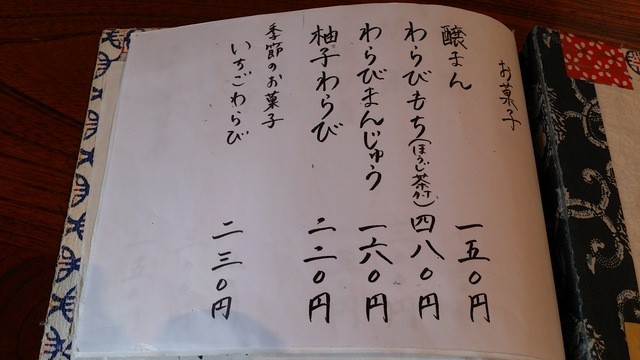 お菓子
醸まん 一五〇円
わらびもち(ほうじ茶付) 四八〇円
わらびまんじゅう 一六〇円
柚子わらび 二二〇円
季節のお菓子
いちごわらび 二三〇円